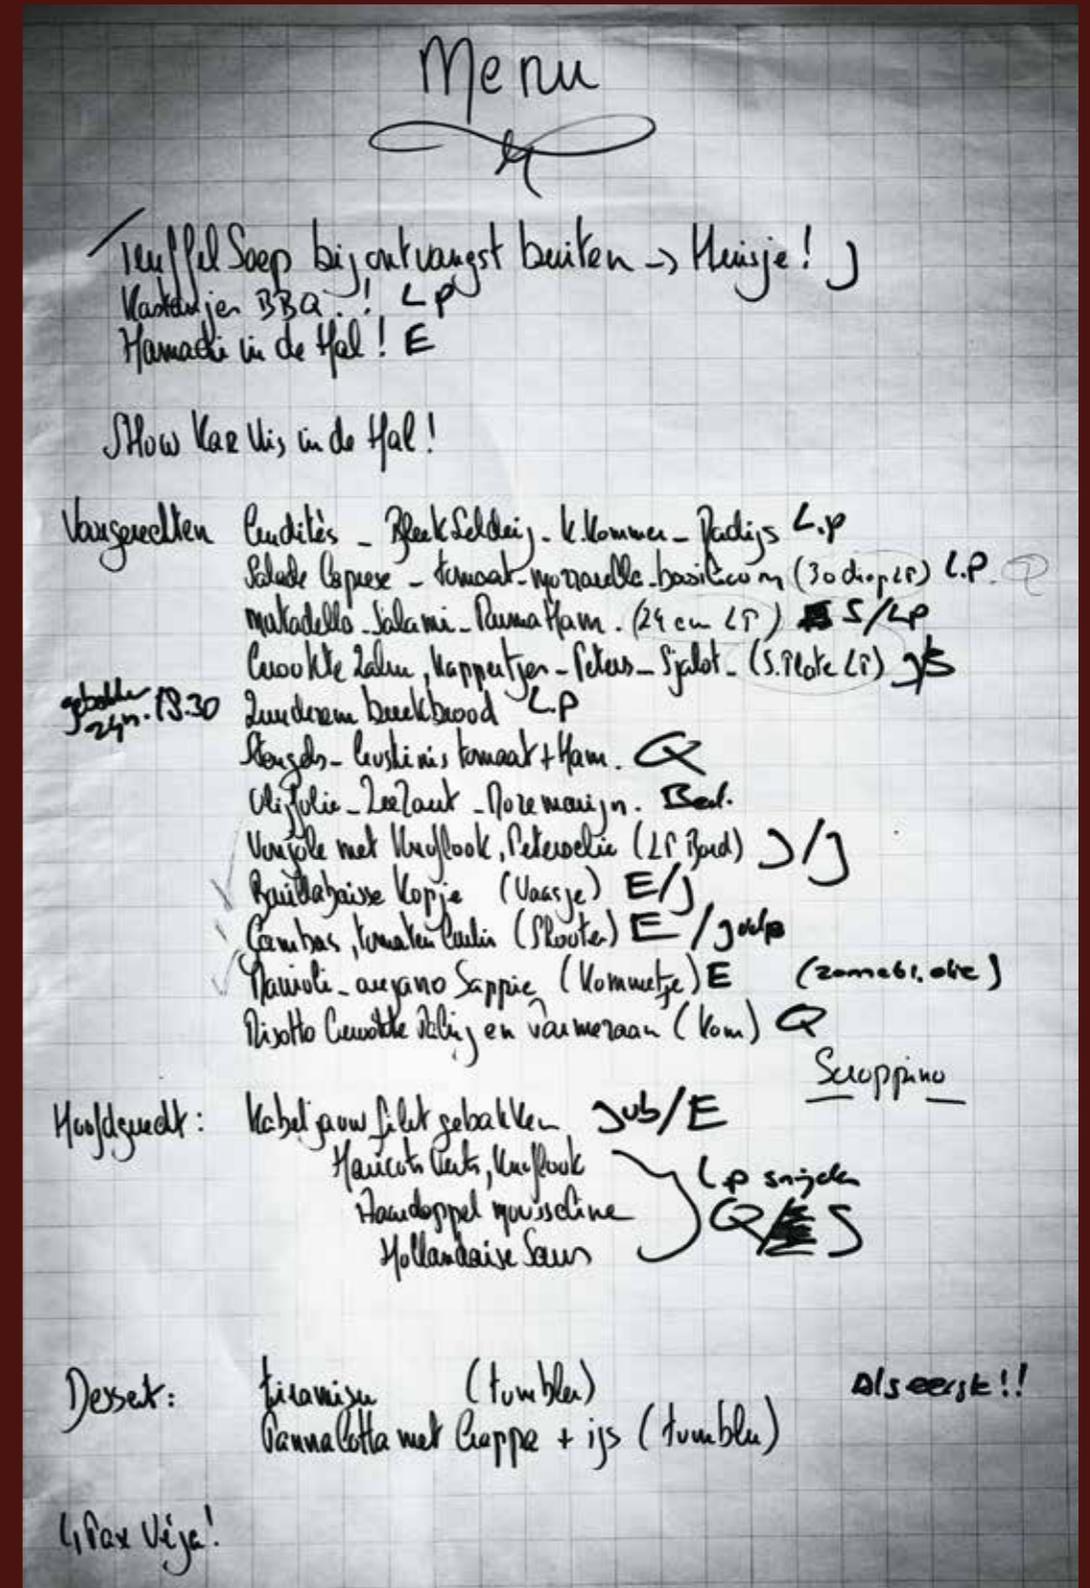 Menu
Truffel Soep bij ontvangst buiten -> Huisje! J
Kastanjer BBQ.! L P
Hamachi in de Hal! E
Show Kar Vis in de Hal!
Voorgerechten Crudités - Bleek Selderij - K.Kommer - Radijs L.P
Salade Caprese - tomaat - mozzarella - basilicum (30 diep LP) L.P.
Mortadella - Salami - Parma Ham. (24 cm LP) S/LP
Gerookte Zalm, Kappertjes - Peters - Sjalot - (S. Plate LP) J/S
gebakken 24n. 18.30 breekbrood L.P
Stengels - Crostinis tomaat + Ham. Q
Olijfolie - Zeezout - Rozemarijn. Bed.
Vongole met Knoflook, Peterselie (LP Bord) J/J
Bouillabaisse Kopje (Vaasje) E/J
Gambas, tomaten Coulis (Shooter) E /
Ravioli - Sappie (Kommetje) E
Risotto Gerookte Paling en Parmezaan (Kom) Q
Scroppino
Hoofdgerecht: Kabeljauw filet gebakken Jub/E
Haricots Verts, Knoflook L.P snijden
Aardappel mousseline Q/ S
Hollandaise Saus
Dessert: tiramisu (tumbler) Als eerste!!
Panna Cotta met Grappa + ijs (tumbler)
4 Pax Vega!